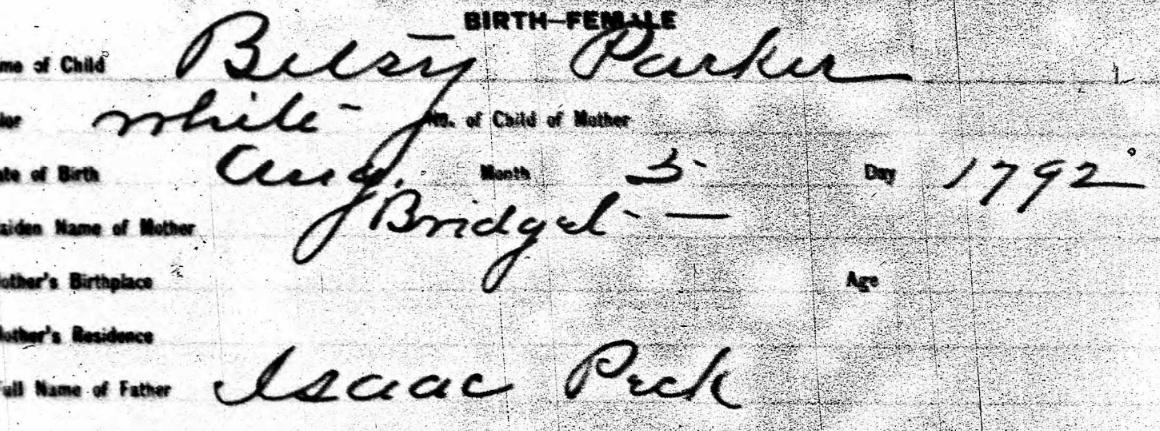 BIRTH—FEMALE
me of Child Betsy Parker
lor White - No. of Child of Mother
ate of Birth Aug. Month 5 Day 1792
aiden Name of Mother Bridget - —
other's Birthplace Age
other's Residence
Full Name of Father Isaac Peck